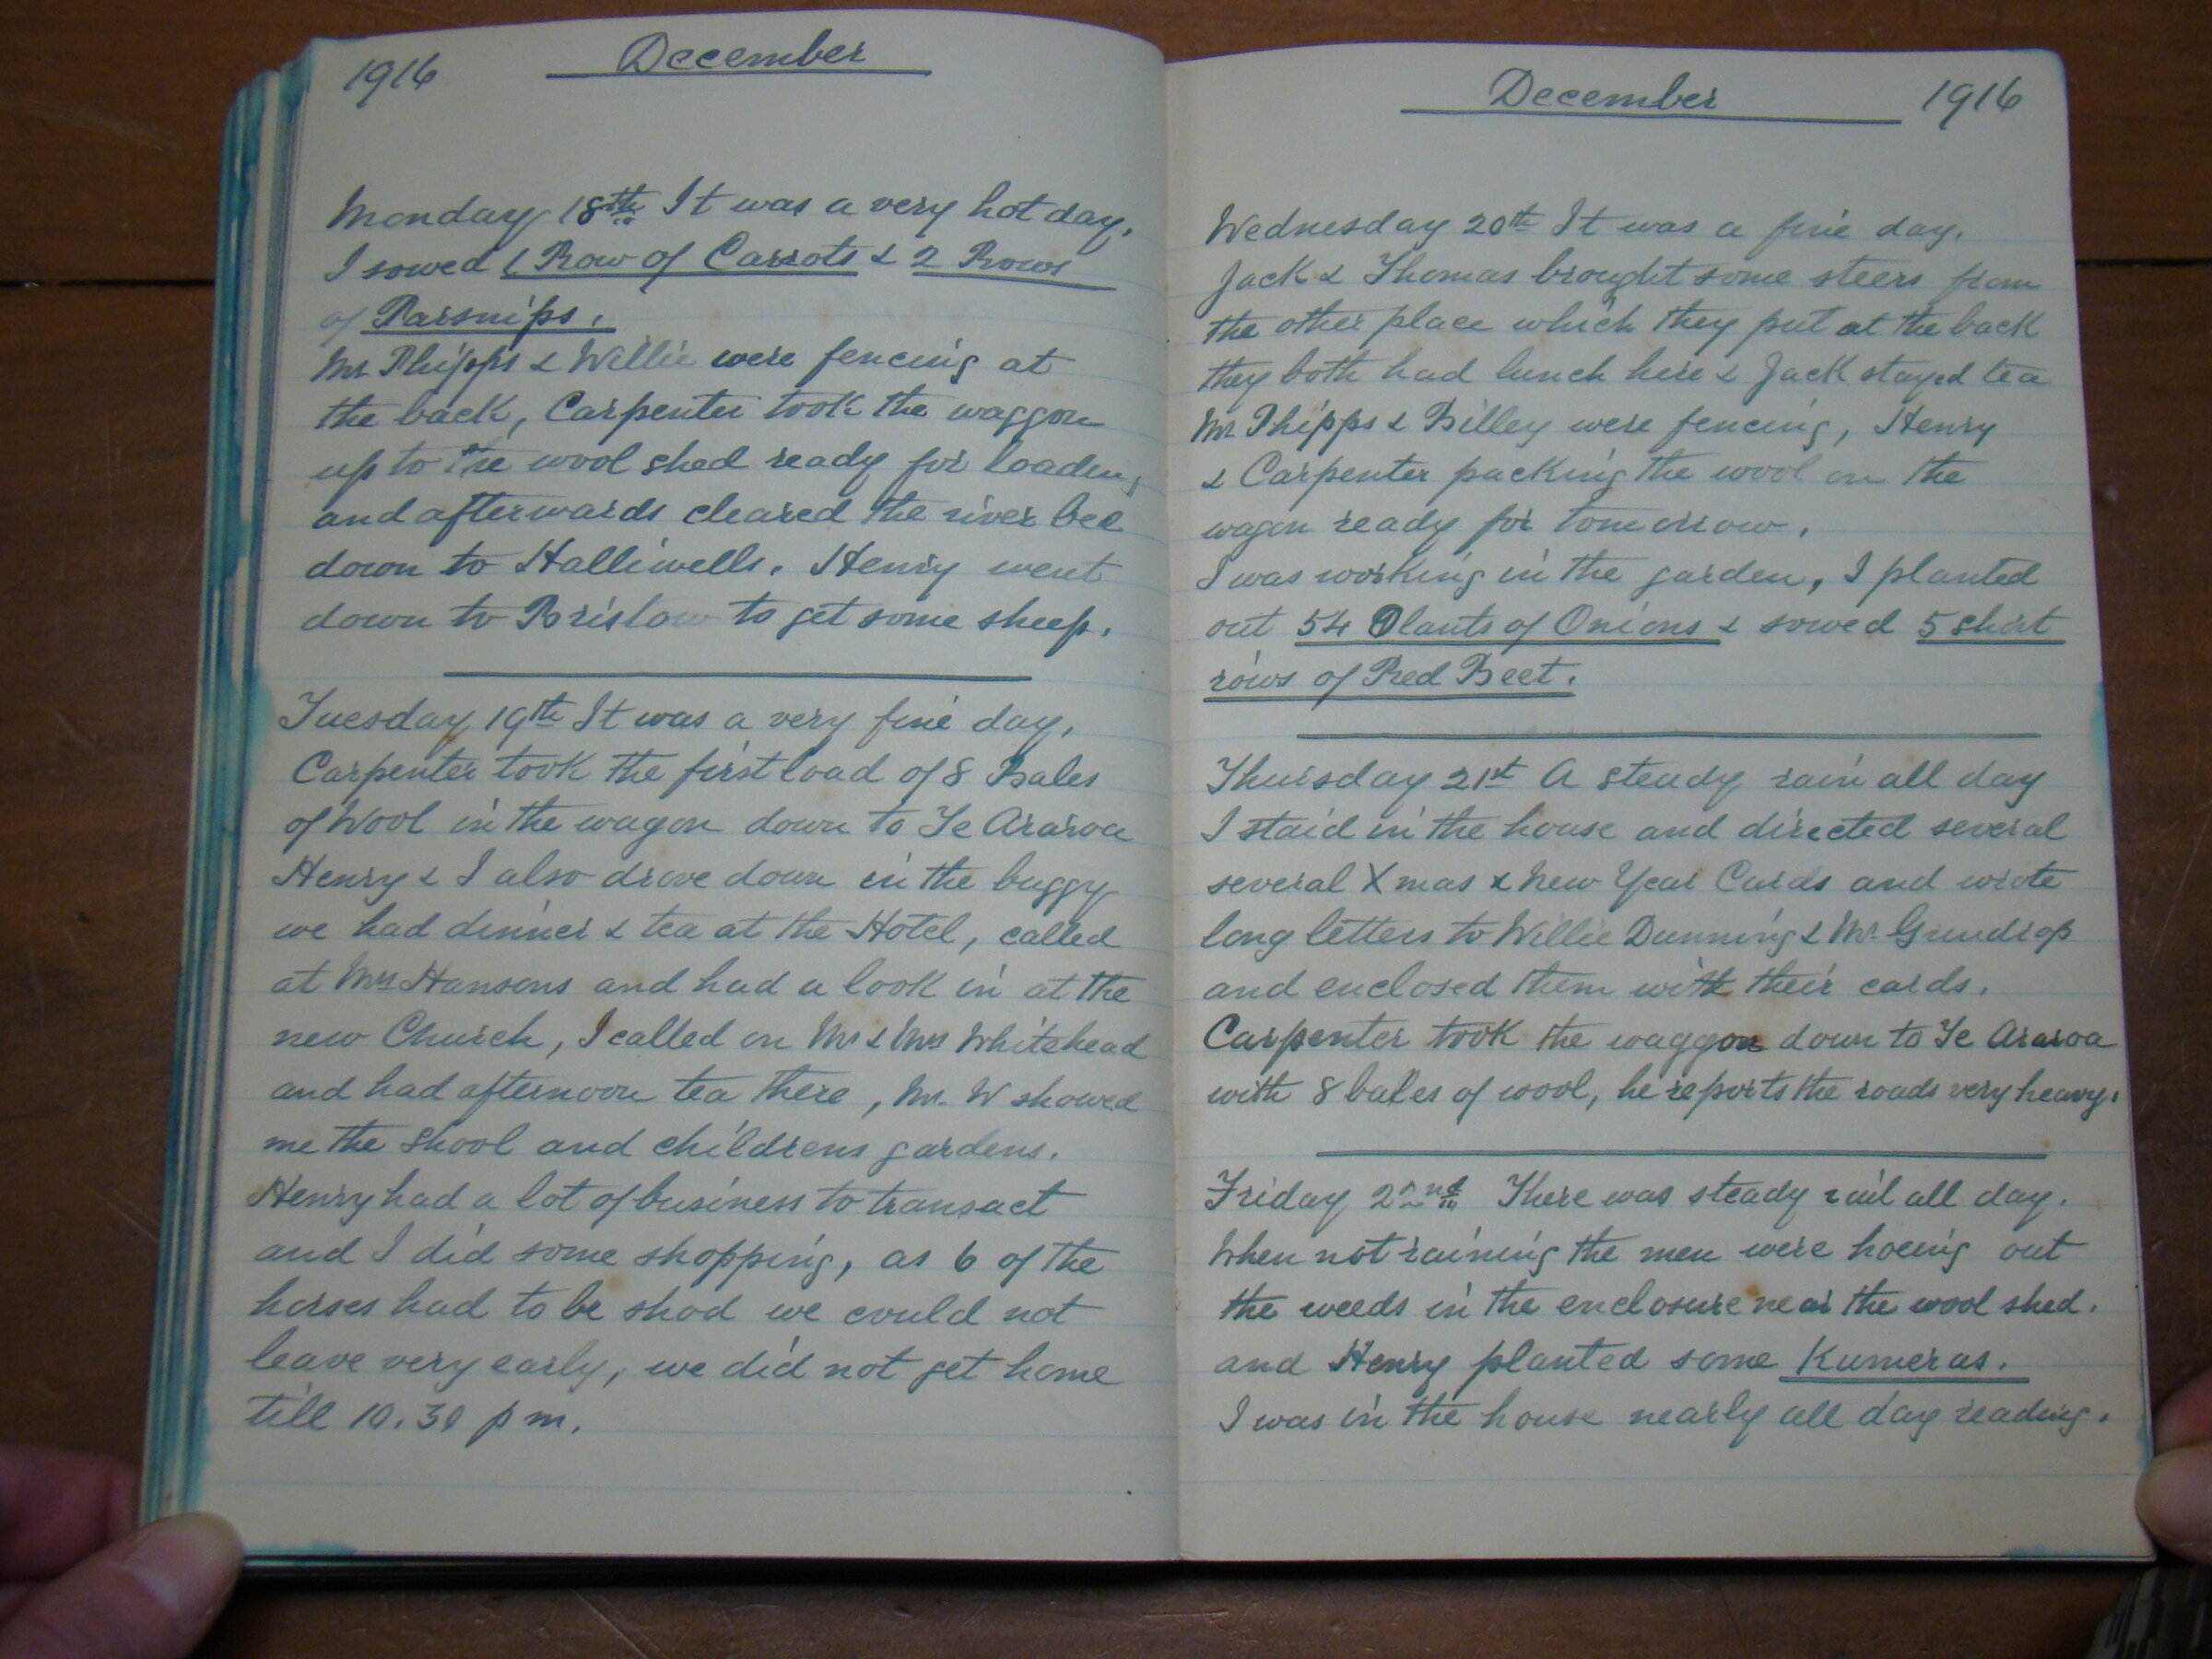 1916 December
Monday 18th It was a very hot day,
I sowed 1 Row of Carrots & 2 Rows
of Parsnips.
Mr Phipps & Willie were fencing at
the back, Carpenter took the waggon
up to the wool shed ready for loading
and afterwards cleared the river bed
down to Halliwells. Henry went
down to Bristow to get some sheep.
Tuesday 19th It was a very fine day,
Carpenter took the first load of 8 Bales
of Wool in the wagon down to Te Araroa
Henry & I also drove down in the buggy
we had dinner & tea at the Hotel, called
at Mrs Hansons and had a look in at the
new Church, I called on Mr & Mrs Whitehead
and had afternoon tea there, Mr. W showed
me the Shool and childrens gardens.
Henry had a lot of business to transact
and I did some shopping, as 6 of the
horses had to be shod we could not
leave very early, we did not get home
till 10.30 pm.
December 1916
Wednesday 20th It was a fine day.
Jack & Thomas brought some steers from
the other place which they put at the back
they both had lunch here & Jack stayed tea
Mr Phipps & Billey were fencing, Henry
& Carpenter packing the wool on the
wagon ready for tomorrow.
I was working in the garden, I planted
out 54 Plants of Onions & sowed 5 short
rows of Red Beet.
Thursday 21st A steady rain all day
I staid in the house and directed several
several Xmas & New Year Cards and wrote
long letters to Willie Dunning & Mr.
and enclosed them with their cards.
Carpenter took the waggon down to Te Araroa
with 8 bales of wool, he reports the roads very heavy.
Friday 22nd There was steady rail all day.
When not raining the men were hoeing out
the weeds in the enclosure near the wool shed.
and Henry planted some Kumeras.
I was in the house nearly all day reading.